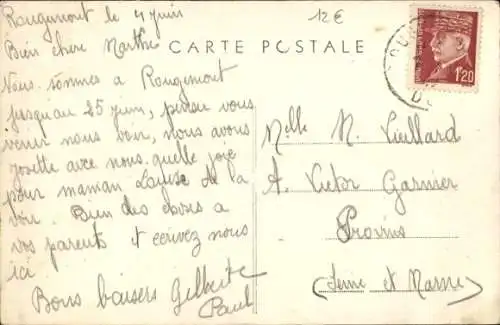 Rougemont le 4 juin
12€
Bien chère Marthe
CARTE POSTALE
Nous sommes a Rougemont
jusqu'au 25 juin, pensez vous
venir nous voir, nous avons
Josette avec nous. quelle joie
pour maman Louise de la
voir. Bien des choses a
vos parents et écrivez nous
ici
Bons baisers Gilberte
Paul
1F20
Melle M. Vieillard
A. Victor Garnier
Provins
(Seine et Marne)